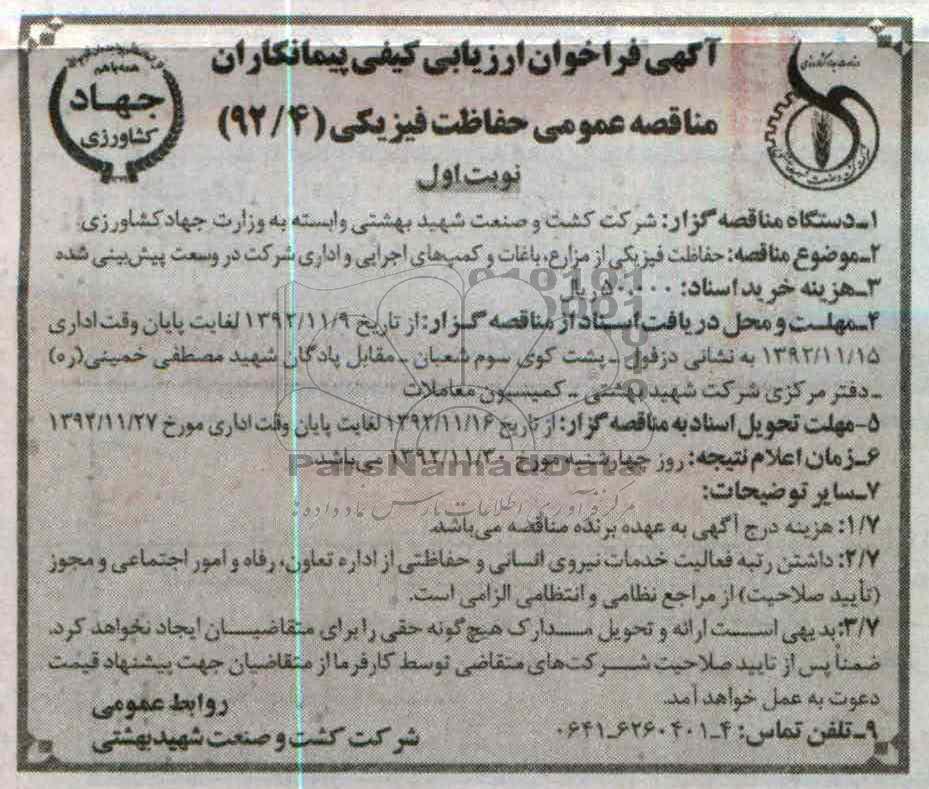 آگهی فراخوان ارزیابی کیفی پیمانکاران
مناقصه عمومی حفاظت فیزیکی (۹۲/۴)
نوبت اول
همه با هم
جهاد
کشاورزی
۱ـدستگاه مناقصه گزار: شرکت کشت و صنعت شهید بهشتی وابسته به وزارت جهاد کشاورزی
۲ـموضوع مناقصه: حفاظت فیزیکی از مزارع، باغات و کمپ‌های اجرایی و اداری شرکت در وسعت پیش‌بینی شده
۳ـهزینه خرید اسناد: ۵۰۰,۰۰۰ ریال
۴ـمهلت و محل دریافت اسناد از مناقصه گزار: از تاریخ ۱۳۹۲/۱۱/۹ لغایت پایان وقت اداری
۱۳۹۲/۱۱/۱۵ به نشانی دزفول ـ پشت کوی سوم شعبان ـ مقابل پادگان شهید مصطفی خمینی(ره)
ـ دفتر مرکزی شرکت شهید بهشتی ـ کمیسیون معاملات
۵-مهلت تحویل اسناد به مناقصه گزار: از تاریخ ۱۳۹۲/۱۱/۱۶ لغایت پایان وقت اداری مورخ ۱۳۹۲/۱۱/۲۷
۶ـزمان اعلام نتیجه: روز چهارشنبه مورخ ۱۳۹۲/۱۱/۳۰ می‌باشد.
۷ـسایر توضیحات:
۱/۷: هزینه درج آگهی به عهده برنده مناقصه می‌باشد.
۲/۷: داشتن رتبه فعالیت خدمات نیروی انسانی و حفاظتی از اداره تعاون، رفاه و امور اجتماعی و مجوز
(تأیید صلاحیت) از مراجع نظامی و انتظامی الزامی است.
۳/۷: بدیهی است ارائه و تحویل مدارک هیچ گونه حقی را برای متقاضیان ایجاد نخواهد کرد.
ضمناً پس از تایید صلاحیت شرکت‌های متقاضی توسط کارفرما از متقاضیان جهت پیشنهاد قیمت
دعوت به عمل خواهد آمد.
۹ـتلفن تماس: ۴ـ۶۲۶۰۴۰۱ـ۰۶۴۱
روابط عمومی
شرکت کشت و صنعت شهید بهشتی
ParsNamadData
مرکز فرآوری اطلاعات پارس نماد داده ها